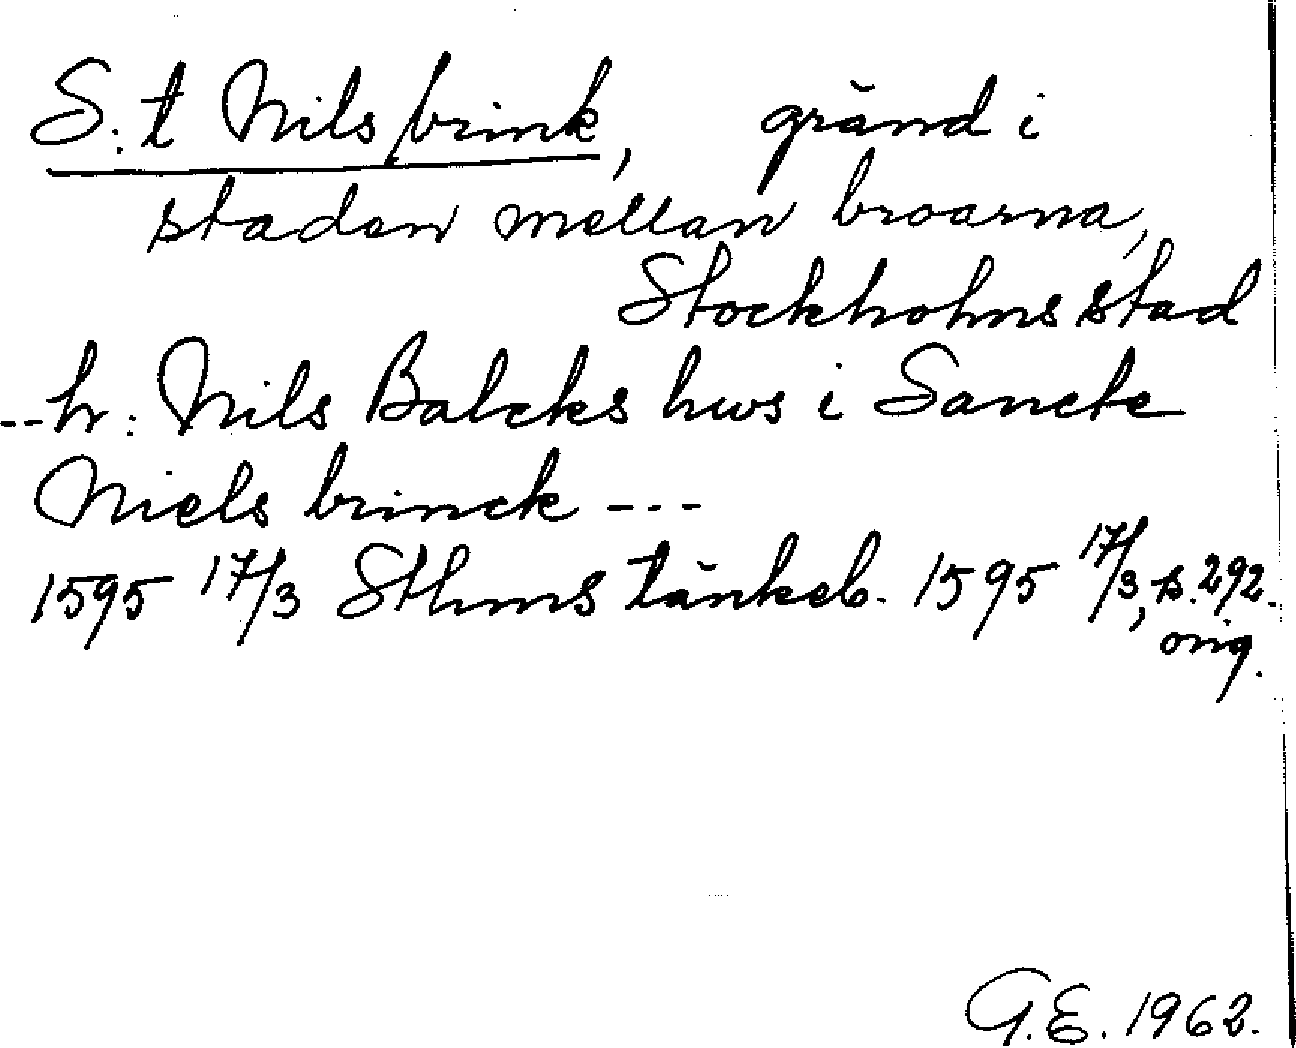 S:t Nils brink, gränd i
staden mellan broarna,
Stockholms stad
--hr: Nils Balcks hws i Sancte
Niels brinck ---
1595 17/3 Sthms tänkeb. 1595 17/3, s. 292.
orig.
G.E. 1962.